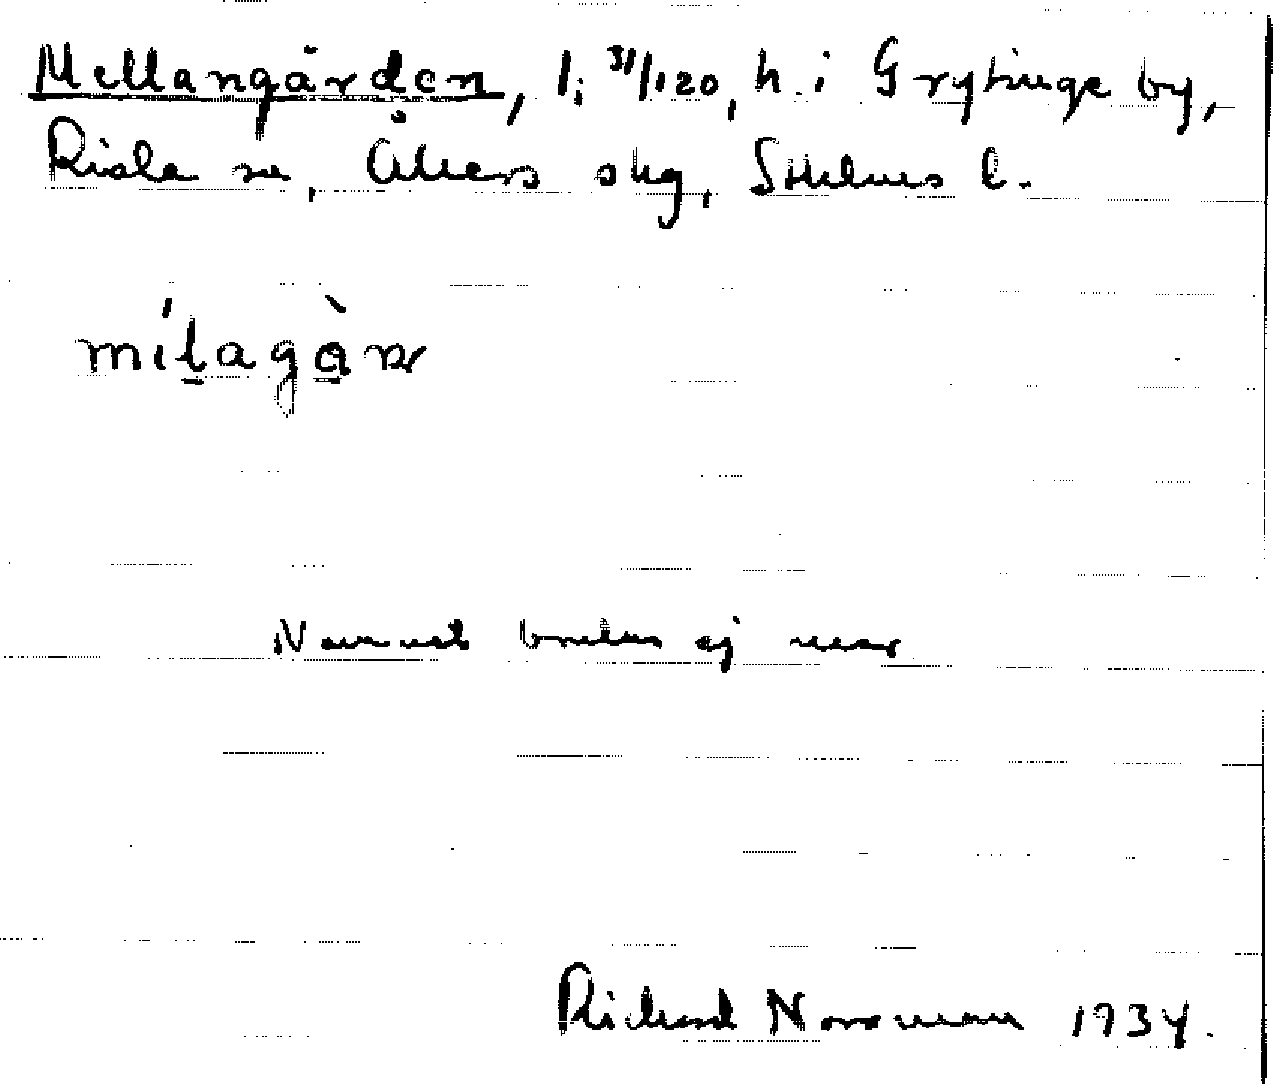 Mellangården, 1; 31/120, h. i Grytinge by,
Riala sn, Åkers skg, Sthlms l.
mílagàṇ
Namnet brukas ej mer
Richard Norrman 1934.